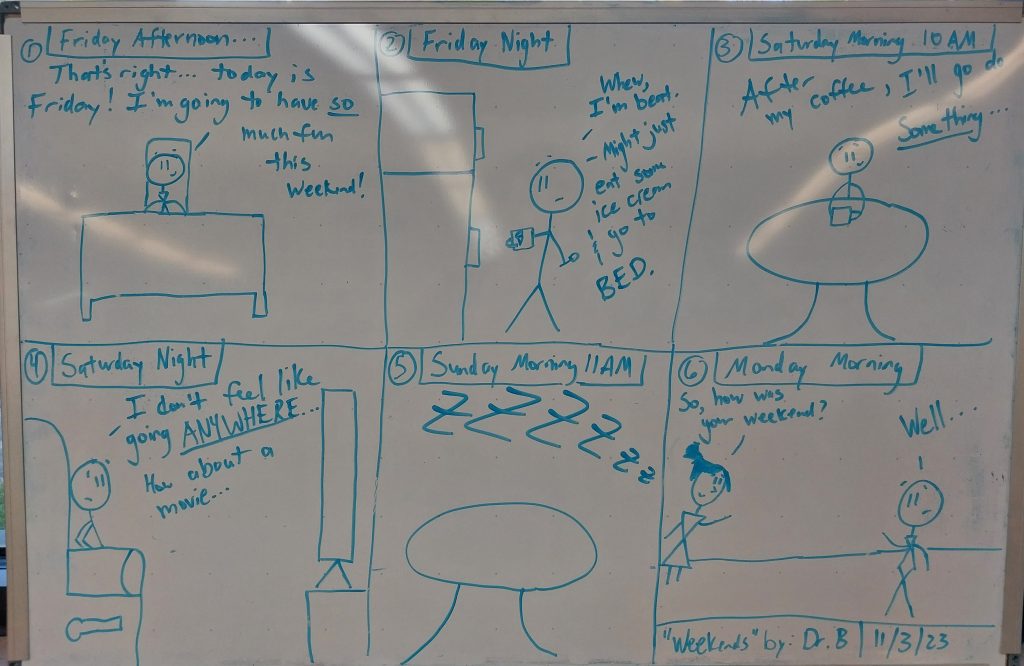 ① Friday Afternoon...
That's right... today is
Friday! I'm going to have so
much fun
this
weekend!
② Friday Night
Whew,
I'm beat.
Might just
eat some
ice cream
& go to
BED.
③ Saturday Morning 10 AM
After coffee, I'll go do
my
Something...
④ Saturday Night
I don't feel like
going ANYWHERE...
How about a
movie...
⑤ Sunday Morning 11AM
ZZZZZzz
⑥ Monday Morning
So, how was
your weekend?
Well...
"Weekends" by: Dr. B | 11/3/23